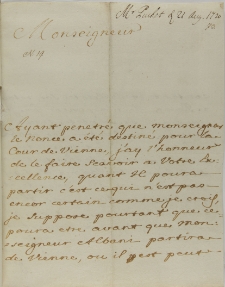 Monseigneur
Ayant penetré que monseigneur
le Nonce a eté destiné pour la
Cour de Vienne, j'ay l'honneur
de le faire scavoir a Votre Ex-
cellence, quant Il poura
partir c'est ce que n'est pas
encor certain comme je crois,
je suppose pourtant que ce
poura etre avant que mon-
seigneur Albani partira
de Vienne, ou il peut